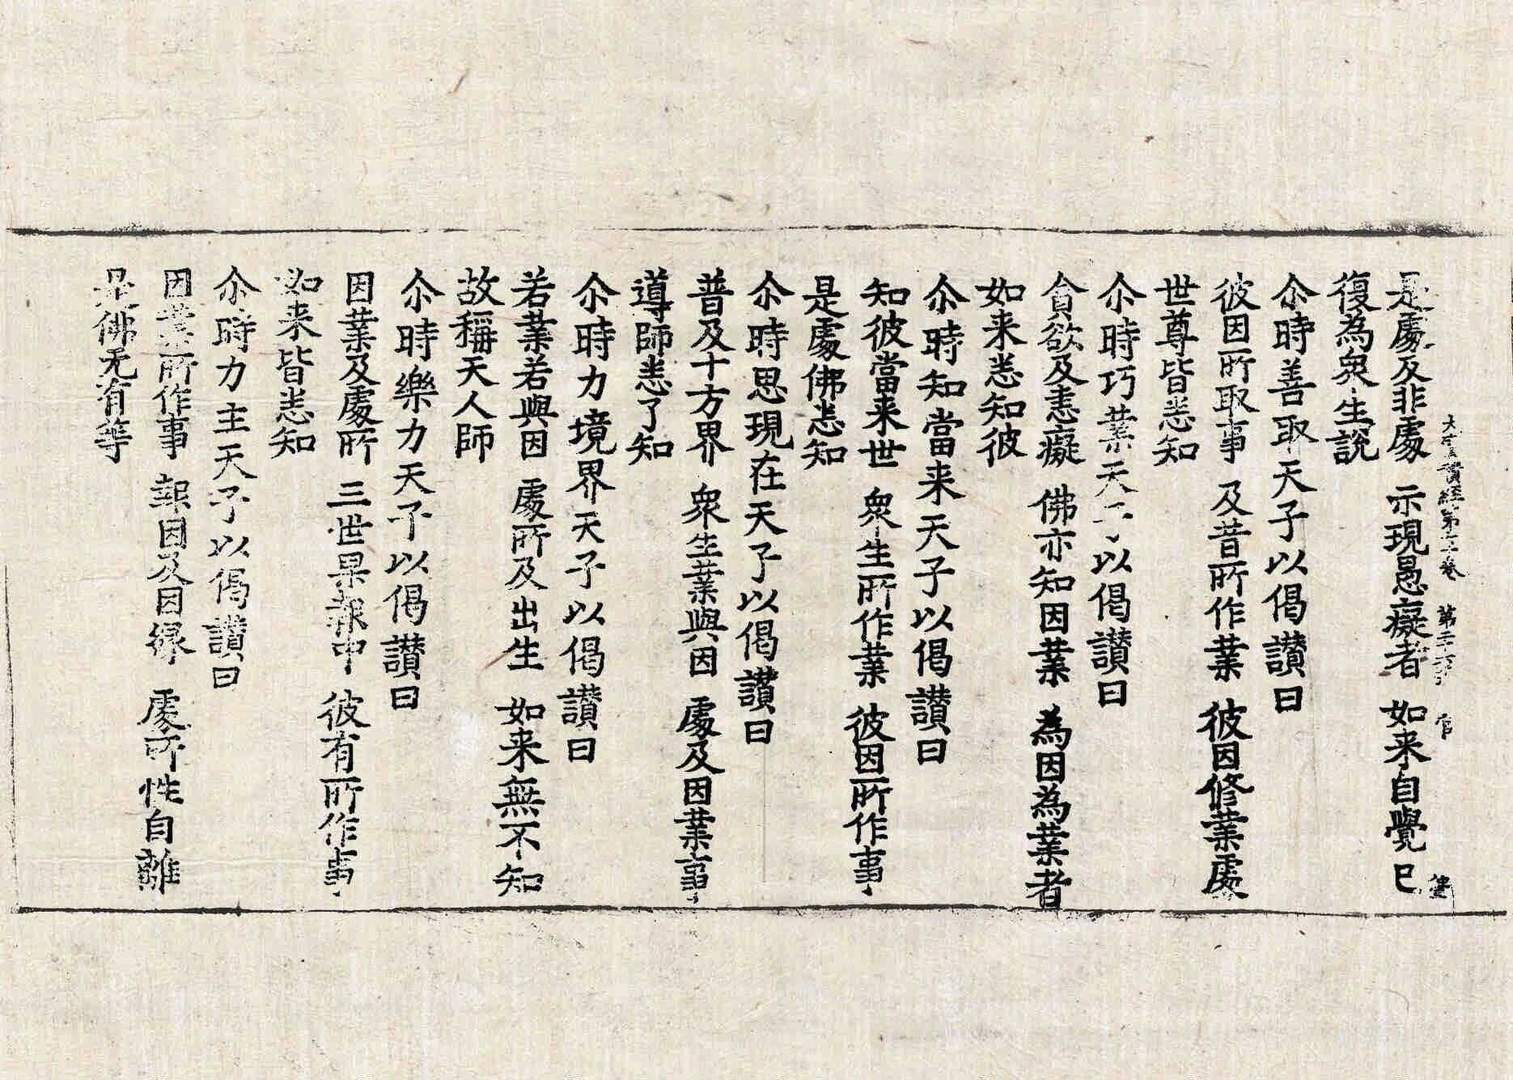 大寶積經第六十卷 第二十六張 官
是處及非處 示現愚癡者 如来自覺已
復為衆生說
尒時善取天子以偈讃曰
彼因所取事 及昔所作業 彼因修業處
世尊皆悉知
尒時巧業天子以偈讃曰
貪欲及恚癡 佛亦知因業 為因為業者
如来悉知彼
尒時知當来天子以偈讃曰
知彼當来世 衆生所作業 彼因所作事
是處佛悉知
尒時思現在天子以偈讃曰
普及十方界 衆生業與因 處及因業事
導師悉了知
尒時力境界天子以偈讃曰
若業若與因 處所及出生 如来無不知
故稱天人師
尒時樂力天子以偈讃曰
因業及處所 三世果報中 彼有所作事
如来皆悉知
尒時力主天子以偈讃曰
因業所作事 報因及因緣 處所性自離
是佛无有等